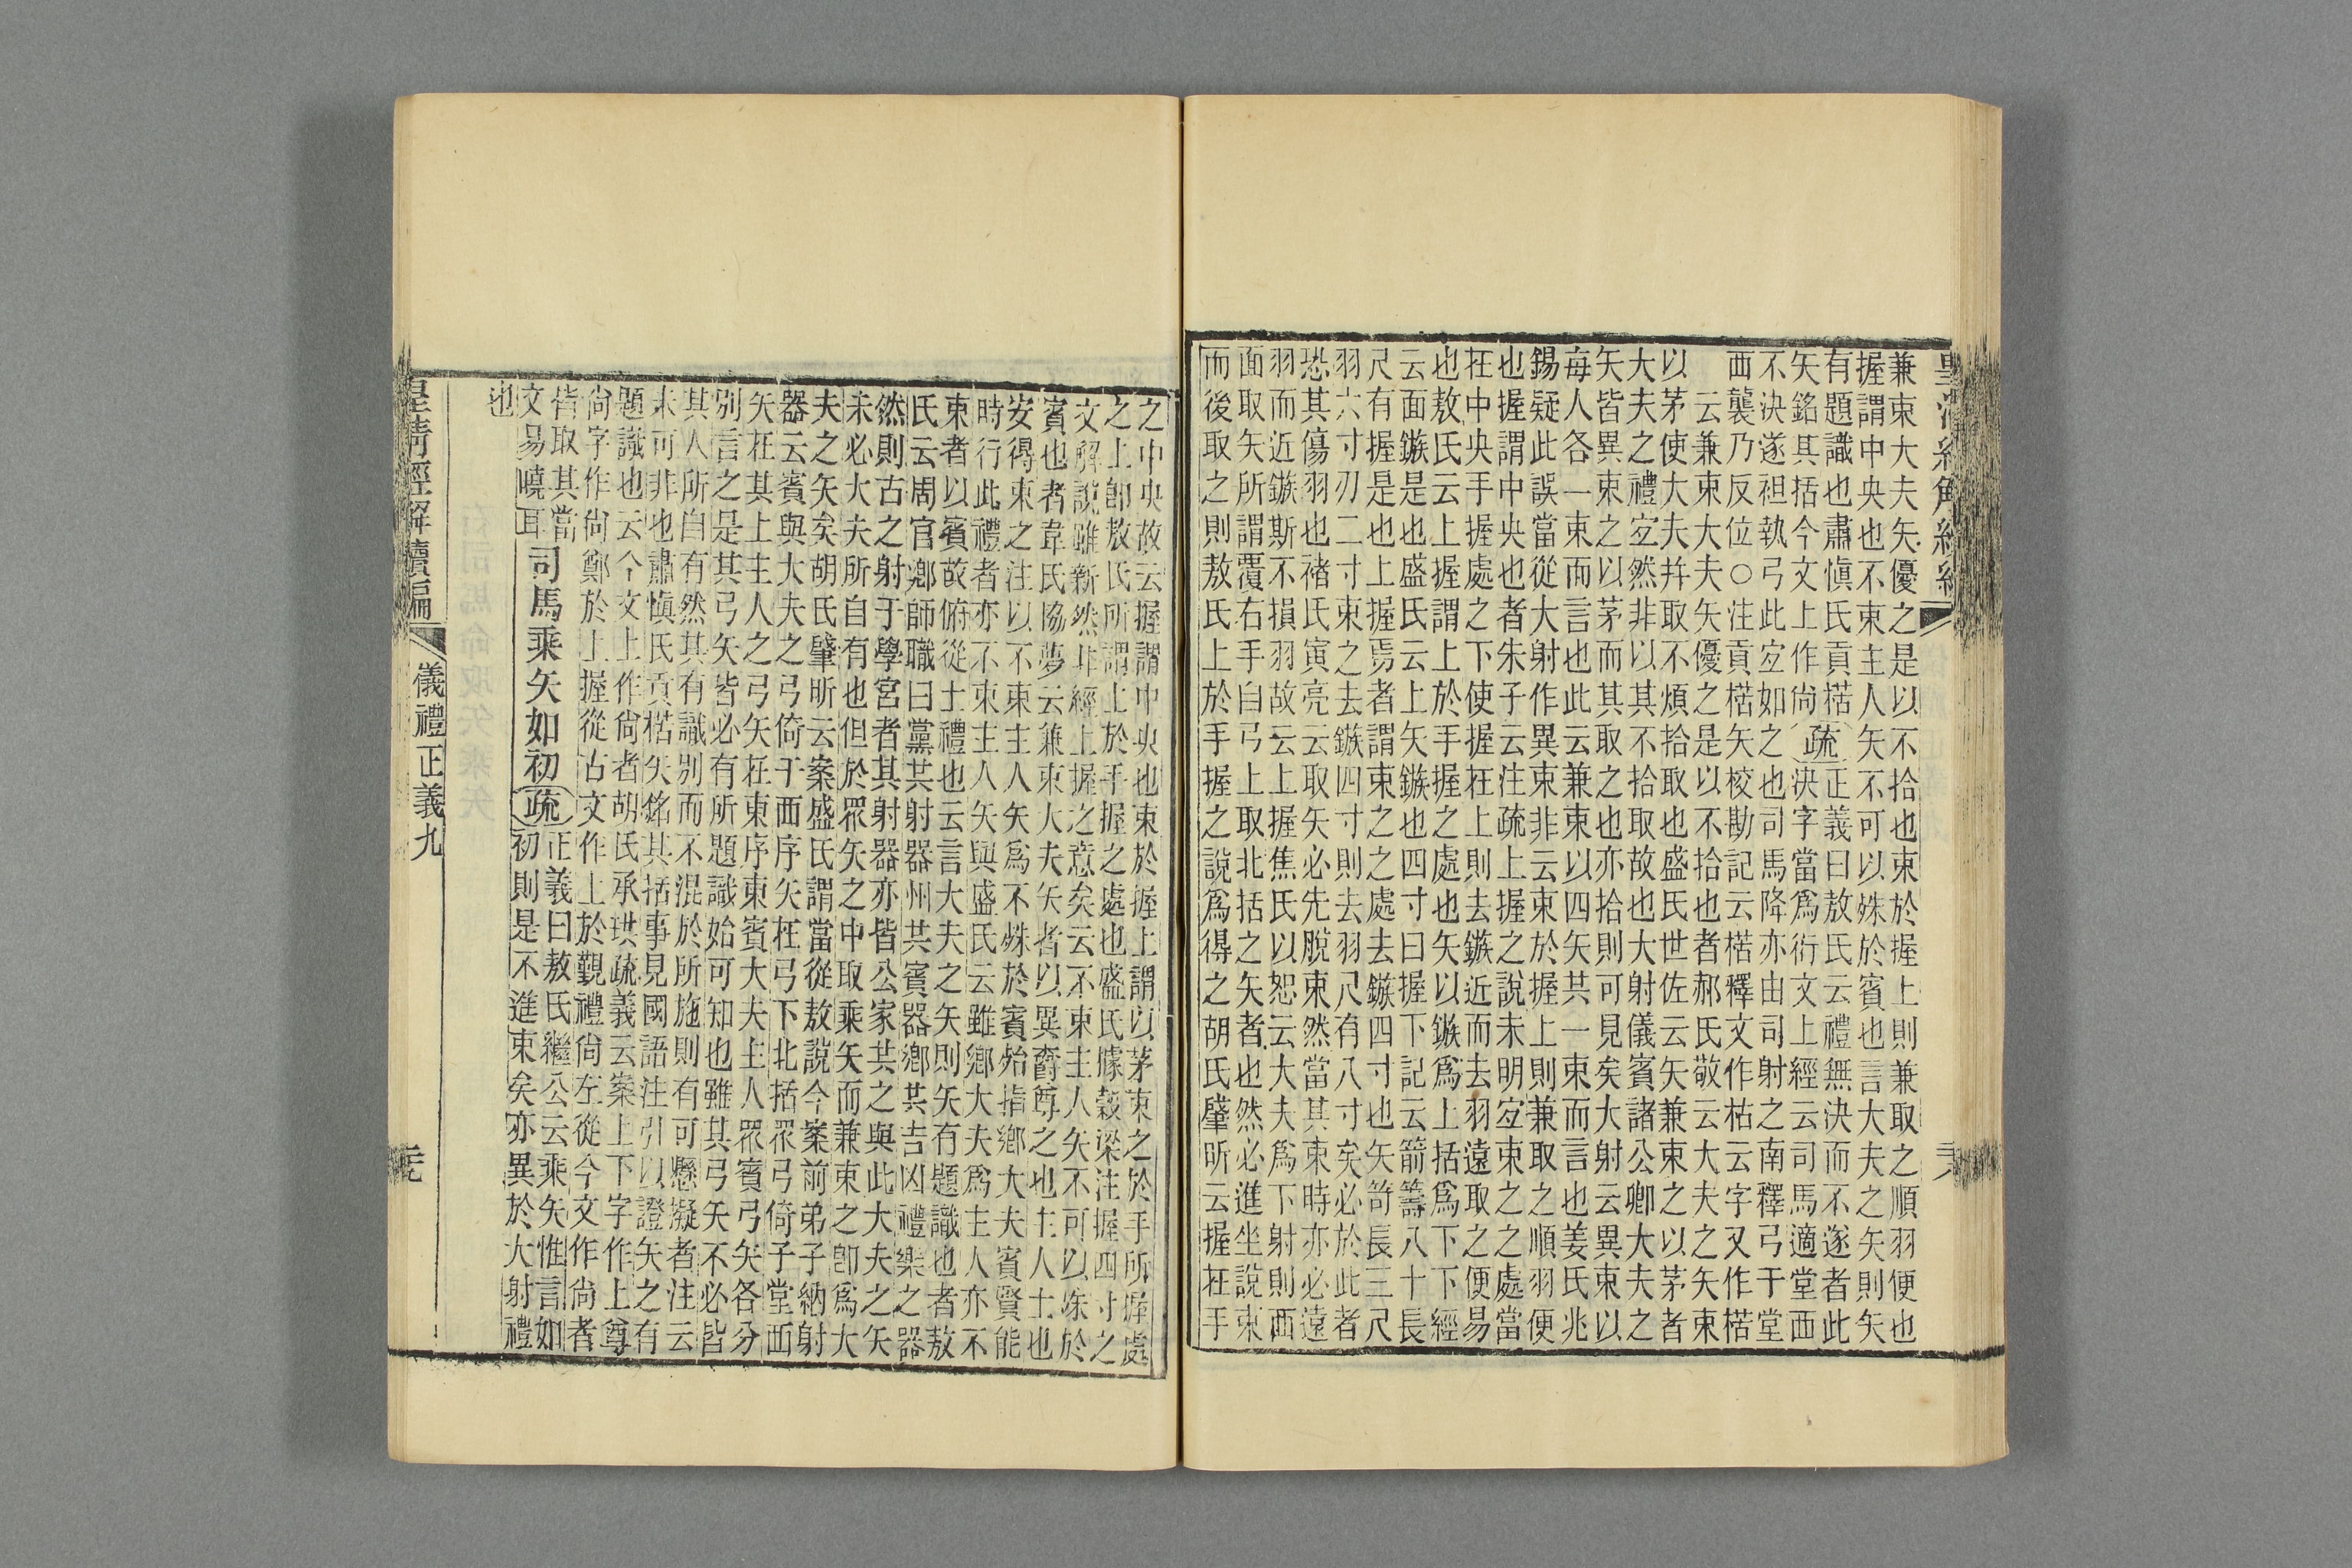 兼束大夫矢優之是以不拾也束於握上則兼取之順羽便也
握謂中央也不束主人矢不可以殊於賓也言大夫之矢則矢
有題識也肅愼氏貢楛
矢銘其括今文上作尙
疏
正義曰敖氏云禮無決而不遂者此
決字當爲衍文上經云司馬適堂西
不決遂袒執弓此宜如之也司馬降亦由司射之南釋弓于堂
西襲乃反位○注貢楛矢校勘記云楛釋文作枯云字又作楛
云兼束大夫矢優之是以不拾也者郝氏敬云大夫之矢束
以茅使大夫幷取不煩拾取也盛氏世佐云矢兼束之以茅者
大夫之禮宜然非以其不拾取故也大射儀賓諸公卿大夫之
矢皆異束之以茅而其取之也亦拾則可見矣大射云異束以
每人各一束而言也此云兼束以四矢共一束而言也姜氏兆
錫疑此誤當從大射作異束非云束於握上則兼取之順羽便
也握謂中央也者朱子云注疏上握之說未明宜束之之處當
在中央手握處之下使手握在上則去鏃近而去羽遠取之便易
也敖氏云上握謂上於手握之處也矢以鏃爲上括爲下下經
云面鏃是也盛氏云上矢鏃也四寸曰握下記云箭籌八十長
尺有握是也上握焉者謂束之之處去鏃四寸也矢笴長三尺
羽六寸刃二寸束之去鏃四寸則去羽尺有八寸矣必於此者
恐其傷羽也褚氏寅亮云取矢必先脫束然當其束時亦必遠
羽而近鏃斯不損羽故云上握焦氏以恕云大夫爲下射則西
面取矢所謂覆右手自弓上取北括之矢者也然必進坐說束
而後取之則敖氏上於手握之說爲得之胡氏肇昕云握在手
之中央故云握謂中央也束於握上謂以茅束之於手所握處
之上卽敖氏所謂上於手握之處也盛氏據穀梁注握四寸之
文解說雖新然非經上握之意矣云不束主人矢不可以殊於
賓也者韋氏協夢云兼束大夫矢者以異爵尊之也主人士也
安得束之注以不束主人矢爲不殊於賓殆指鄕大夫賓賢能
時行此禮者亦不束主人矢與盛氏云雖鄕大夫爲主人亦不
束者以賓故俯從士禮也云言大夫之矢則矢有題識也者敖
氏云周官鄕師職曰黨共射器州共賓器鄕共吉凶禮樂之器
然則古之射于學宮者其射器亦皆公家共之與此大夫之矢
未必大夫所自有也但於眾矢之中取乘矢而兼束之卽爲大
夫之矢矣胡氏肇昕云案盛氏謂當從敖說今案前弟子納射
器云賓與大夫之弓倚于西序矢在弓下北括眾弓倚于堂西
矢在其上主人之弓矢在東序東賓大夫主人眾賓弓矢各分
別言之是其弓矢皆必有所題識始可知也雖其弓矢不必皆
其人所自有然其有識別而不混於所施則有可懸擬者注云
未可非也肅愼氏貢楛矢銘其括事見國語注引以證矢之有
題識也云今文上作尙者胡氏承珙疏義云案上下字作上尊
尙字作尙鄭於上握從古文作上於覲禮尙左從今文作尙者
皆取其當
文易曉耳
司馬乘矢如初
疏
正義曰敖氏繼公云乘矢惟言如
初則是不進束矣亦異於大射禮
也
儀禮正義九